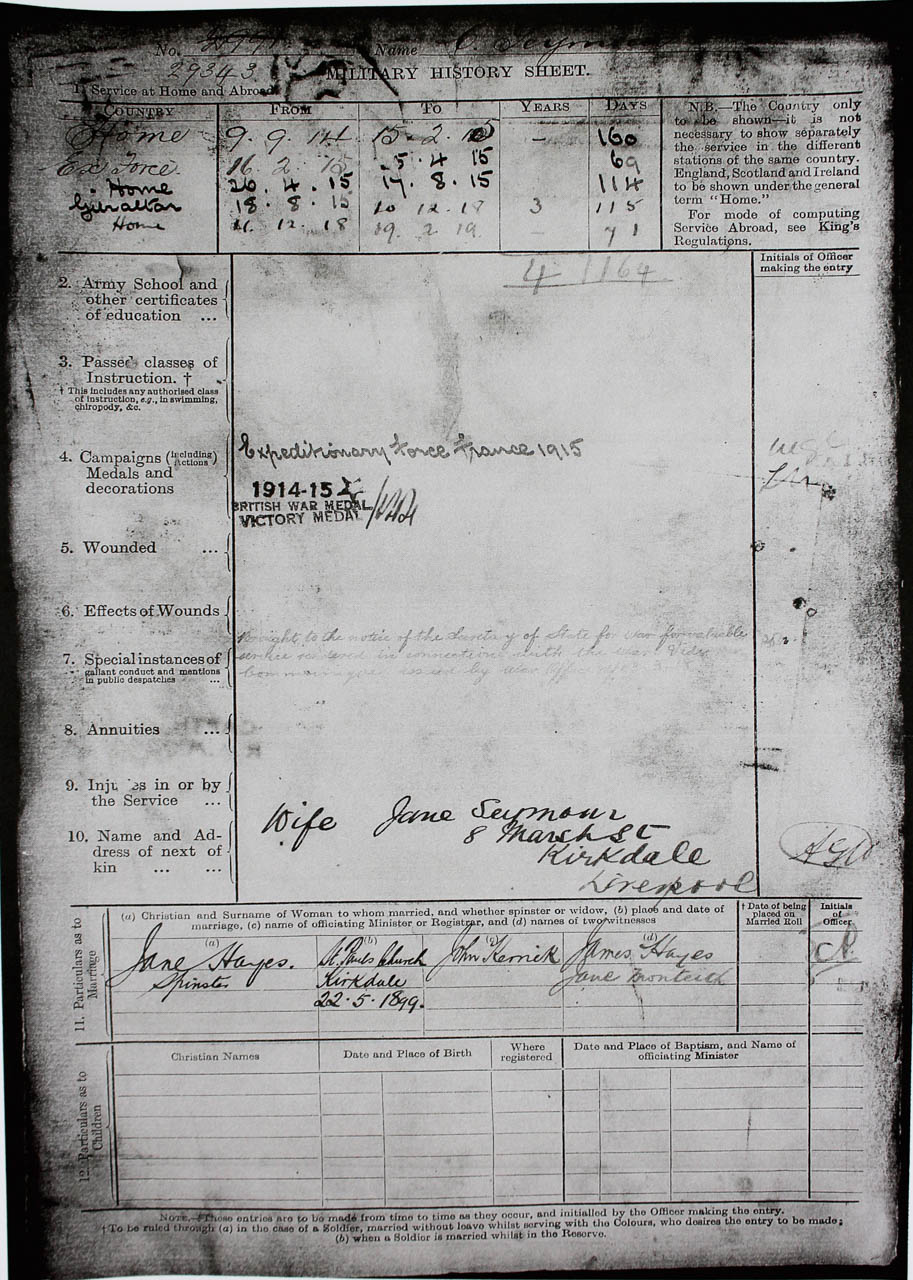 No. Name C. Seym
29343
MILITARY HISTORY SHEET.
1. Service at Home and Abroad
COUNTRY FROM TO YEARS DAYS
Home 9. 9. 14 15. 2. 15 - 160
Ex Force. 16 2 15 5 4 15 69
Home 20. 4. 15 17. 8. 15 114
Gibraltar 18. 8. 15 10 12. 18 3 115
Home 11. 12. 18 19. 2 19. - 71
4 164
N.B.—The Country only
to be shown—it is not
necessary to show separately
the service in the different
stations of the same country.
England, Scotland and Ireland
to be shown under the general
term "Home."
For mode of computing
Service Abroad, see King's
Regulations.
Initials of Officer
making the entry
2. Army School and
other certificates
of education ...
3. Passed classes of
Instruction. †
† This includes any authorised class
of instruction, e.g., in swimming,
chiropody, &c.
4. Campaigns (including actions)
Medals and
decorations
Expeditionary Force France 1915
1914-15
BRITISH WAR MEDAL
VICTORY MEDAL
5. Wounded ...
6. Effects of Wounds
7. Special instances of
gallant conduct and mentions
in public despatches ...
Brought to the notice of the Secretary of State for War for valuable
service rendered in connection with the war. Vide
issued by
8. Annuities ...
9. Injuries in or by
the Service ...
10. Name and Ad-
dress of next of
kin ... ...
Wife Jane Seymour
8 Marsh St
Kirkdale
Liverpool
11. Particulars as to
Marriage
(a) Christian and Surname of Woman to whom married, and whether spinster or widow, (b) place and date of
marriage, (c) name of officiating Minister or Registrar, and (d) names of two witnesses
† Date of being
placed on
Married Roll
Initials
of
Officer
(a) (b) (c) (d)
Jane Hayes. St. Pauls Church John Kerrick James Hayes
Spinster Kirkdale Jane Monteith
22. 5. 1899.
12. Particulars as to
Children
Christian Names
Date and Place of Birth
Where
registered
Date and Place of Baptism, and Name of
officiating Minister
NOTE.—These entries are to be made from time to time as they occur, and initialled by the Officer making the entry.
† To be ruled through (a) in the case of a Soldier, married without leave whilst serving with the Colours, who desires the entry to be made;
(b) when a Soldier is married whilst in the Reserve.